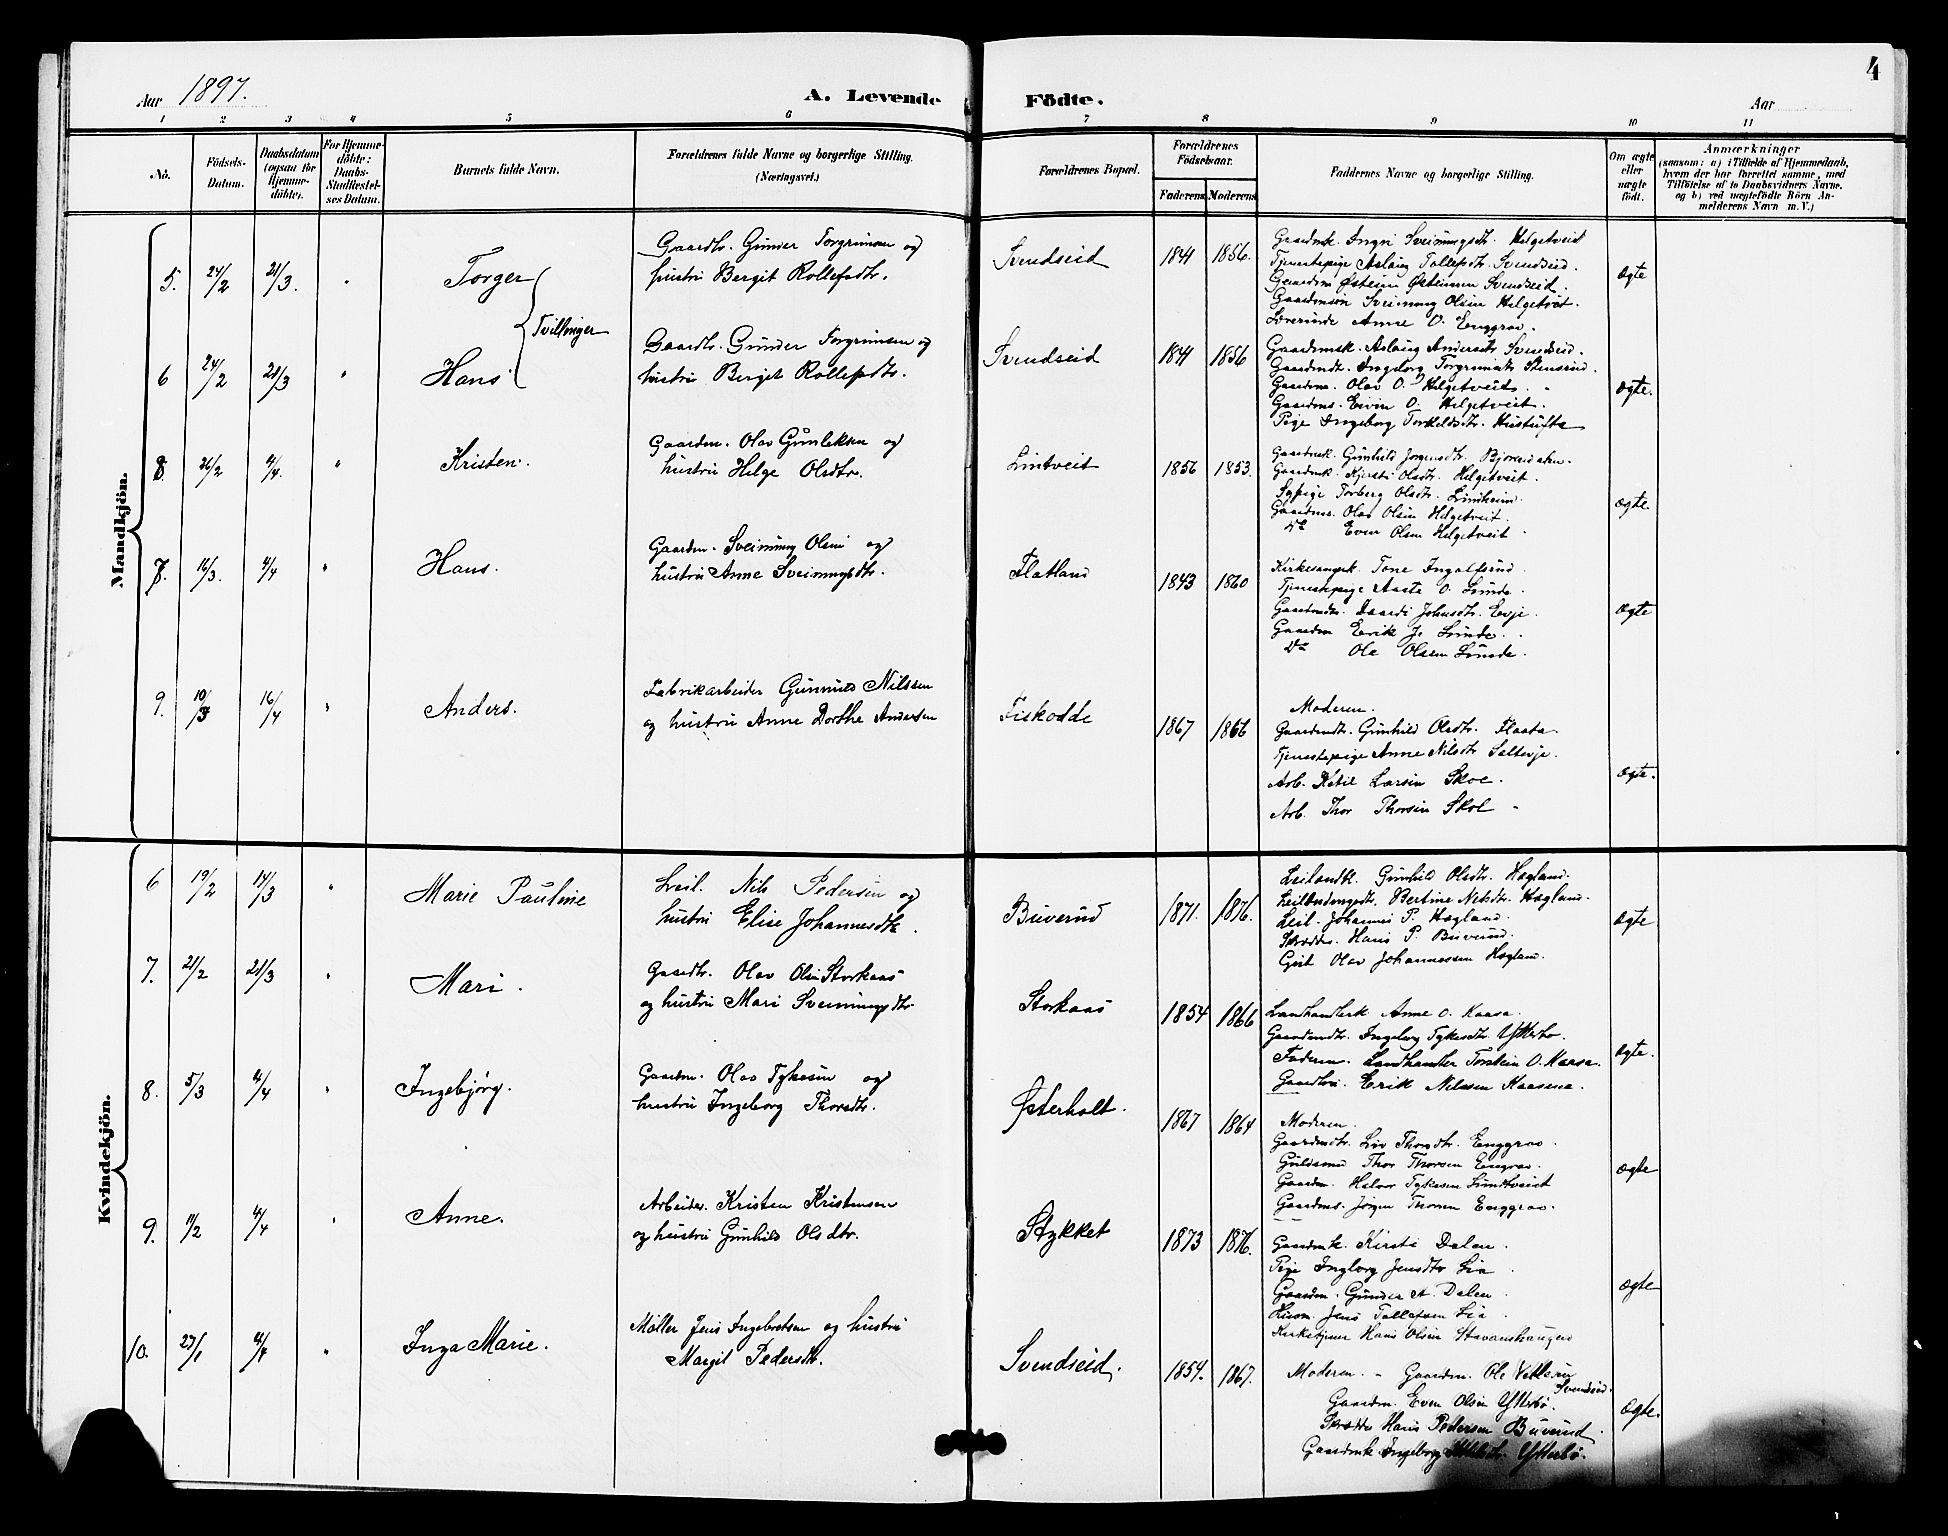 4
Aar 1897. A. Levende Födte. Aar
1 2 3 4 5 6 7 8 9 10 11
No.
Födsels-
Datum.
Daabsdatum
(ogsaa for
Hjemme-
döbte).
For Hjemme-
döbte:
Daabs-
Stadfæstel-
ses Datum.
Barnets fulde Navn.
Forældrenes fulde Navne og borgerlige Stilling.
(Næringsvei.)
Forældrenes Bopæl.
Forældrenes
Födselsaar.
Faderens Moderens
Faddernes Navne og borgerlige Stilling.
Om ægte
eller
uægte
födt.
Anmærkninger
(saasom: a) i Tilfælde af Hjemmedaab,
hvem der har forrettet samme, med
Tilföielse af to Daabsvidners Navne,
og b) ved uægtefödte Börn An-
melderens Navn m. V.)
Mandkjön.
5. 24/2 21/3. " Torger
Tvillinger
Gaardbr. Gunder Torgrimsen og
hustru Bergit Rollefsdtr.
Svendseid 1841 1856.
Gaardmk. Ingri Sveinungsdtr. Helgetveit
Tjenestepige Aslaug Tollefsdtr. Svendseid.
Gaardm Østein Østeinsen Svendseid.
Gaardmsøn Sveinung Olsen Helgetveit.
Lærerinde Anne O. Enggrav.
ægte
6 24/2 21/3 " Hans
Gaardbr. Gunder Torgrimsen og
hustru Bergit Rollefsdtr.
Svendseid 1841 1856
Gaardmsk. Aslaug Andersdtr. Svendseid.
Gaardmdtr. Ingeborg Torgrimsdtr.
Gaardms. Olav O. Helgetveit.
Gaardms. Eivin O. Helgetveit.
Pige Ingeborg Torkildsdtr.
ægte.
8. 26/2 4/4. " Kristen.
Gaardm. Olav Gunleksen og
hustru Helge Olsdtr.
Lintveit 1856 1853.
Gaardmk. Gunhild Jørgensdtr.
Gaardmk. Kjersti Olsdtr. Helgetveit.
Sypige Torberg Olsdtr. Lindheim.
Gaardms. Olav Olsen Helgetveit.
Do Even Olsen Helgetveit.
ægte.
7. 16/3. 4/4 " Hans.
Gaardm. Sveinung Olsen og
hustru Anne Sveinungsdtr.
Flatland 1843 1860
Kirkesangerk. Tone Ingolfsrud.
Tjenestepige Aaste O. Lunde.
Gaardmdtr. Johnsdtr. Evje.
Gaardm Erik J. Lunde.
Do Ole Olsen Lunde.
ægte
9. 19/3 16/4 " Anders.
Fabrikarbeider Gunnuld Nilssen
og hustru Anne Dorthe Andersen
Fiskodde 1867 1866
Moderen.
Gaardmdtr. Gunhild Olsdtr. Flaata.
Tjenestepige Anne Nilsdtr
Arb. Ketil Larsen Skoe.
Arb. Thor Thorsen
ægte.
Kvindekjön.
6 19/2 14/3 " Marie Pauline
Leil. Nils Pedersen og
hustru Elise Johannesdtr.
Buverud 1871. 1876.
Leilændk. Gunhild Olsdtr. Hogland.
Leilændingsdtr. Bertine Nilsdtr. Hogland.
Leil. Johannes P. Hogland.
Skrædder. Hans P. Buverud.
Gut Olav Johannessen Hogland.
ægte
7. 21/2 21/3 " Mari.
Gaardbr. Olav Olsen Storkaas
og hustru Mari Sveinungsdtr
Storkaas 1854 1866
Landhandlerk Anne O. Kaasa.
Gaardmdtr. Ingeborg Tykesdtr. Ytterbø.
Faderen. Landhandler Torstein O. Kaasa.
Gaardbr. Erik Nilssen Kaasene.
ægte.
8. 5/3 4/4 " Ingebjörg.
Gaardm. Olav Tykesen og
hustru Ingeborg Thorsdtr.
Østerholt. 1867 1864
Moderen.
Gaardmdtr. Liv Thorsdtr. Enggrav.
Guldsmed Thor Thorsen Enggrav.
Gaardm. Halvor Tykesen
Gaardms. Jørgen Thorsen Enggrav.
ægte
9. 11/2 4/4 " Anne.
Arbeider. Kristen Kristensen
og hustru Gunhild Olsdtr.
Stykket 1873 1876.
Gaardmk. Kirsti Dalen.
Pige Ingeborg Jensdtr Lia.
Gaardm. Gunder A. Dalen.
Jens Tollefsen Lia.
Kirketjener Hans Olsen Stavanshaugen
ægte
10. 27/1 4/4 " Inga Marie.
Møller Jens Ingebretsen og hustru
Margit Pedersdtr.
Svendseid. 1854. 1867.
Moderen. - Gaardm. Ole Vetlesen
Svendseid.
Gaardm. Even Olsen Ytterbø.
Skrædder Hans Pedersen Buverud.
Gaardmk. Ingeborg Ytterbø.
ægte.